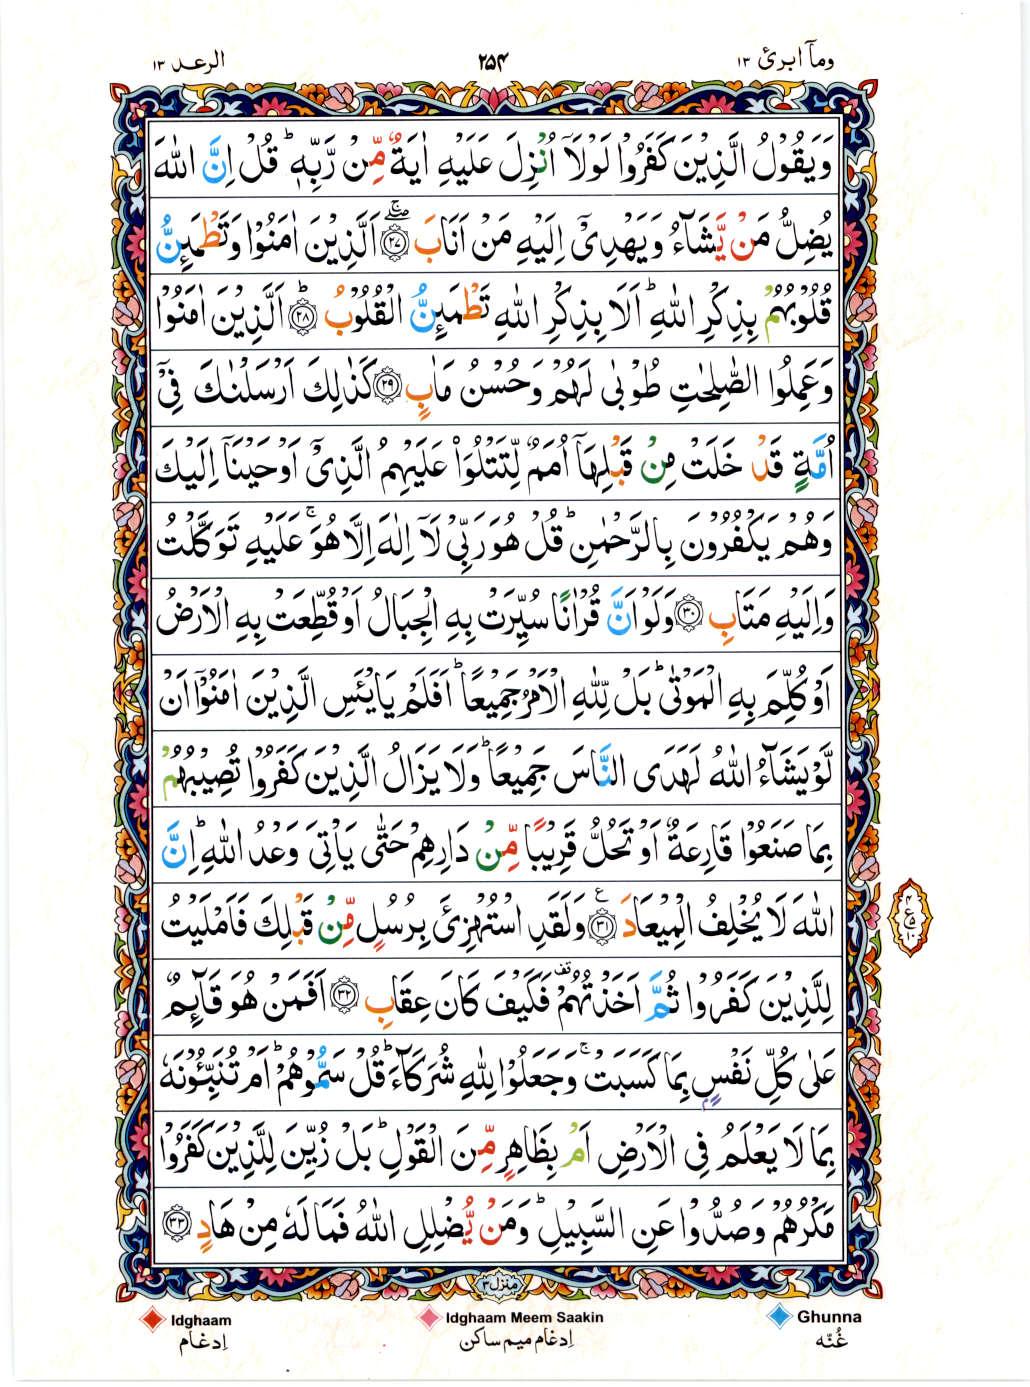 الرعد ١٣ ٢٥٤ ومآ ابرئ ١٣
وَيَقُوْلُ الَّذِيْنَ كَفَرُوْا لَوْلَاۤ اُنْزِلَ عَلَيْهِ اٰيَةٌ مِّنْ رَّبِّهٖ ؕ قُلْ اِنَّ اللّٰهَ
يُضِلُّ مَنْ يَّشَآءُ وَيَهْدِىْۤ اِلَيْهِ مَنْ اَنَابَ ۖۚ‏ ﴿۲۷﴾ اَلَّذِيْنَ اٰمَنُوْا وَتَطْمَئِنُّ
قُلُوْبُهُمْ بِذِكْرِ اللّٰهِ ؕ اَلَا بِذِكْرِ اللّٰهِ تَطْمَئِنُّ الْقُلُوْبُ ؕ ﴿۲۸﴾ اَلَّذِيْنَ اٰمَنُوْا
وَعَمِلُوا الصّٰلِحٰتِ طُوْبٰى لَهُمْ وَحُسْنُ مَاٰبٍ ﴿۲۹﴾ كَذٰلِكَ اَرْسَلْنٰكَ فِىْۤ
اُمَّةٍ قَدْ خَلَتْ مِنْ قَبْلِهَاۤ اُمَمٌ لِّتَتْلُوَا۟ عَلَيْهِمُ الَّذِىْۤ اَوْحَيْنَاۤ اِلَيْكَ
وَهُمْ يَكْفُرُوْنَ بِالرَّحْمٰنِ ؕ قُلْ هُوَ رَبِّىْ لَاۤ اِلٰهَ اِلَّا هُوَ ۚ عَلَيْهِ تَوَكَّلْتُ
وَاِلَيْهِ مَتَابِ ﴿۳۰﴾ وَلَوْ اَنَّ قُرْاٰنًا سُيِّرَتْ بِهِ الْجِبَالُ اَوْ قُطِّعَتْ بِهِ الْاَرْضُ
اَوْ كُلِّمَ بِهِ الْمَوْتٰى ؕ بَلْ لِّلّٰهِ الْاَمْرُ جَمِيْعًا ؕ اَفَلَمْ يَايْـَٔسِ الَّذِيْنَ اٰمَنُوْۤا اَنْ
لَّوْ يَشَآءُ اللّٰهُ لَهَدَى النَّاسَ جَمِيْعًا ؕ وَلَا يَزَالُ الَّذِيْنَ كَفَرُوْا تُصِيْبُهُمْ
بِمَا صَنَعُوْا قَارِعَةٌ اَوْ تَحُلُّ قَرِيْبًا مِّنْ دَارِهِمْ حَتّٰى يَاْتِىَ وَعْدُ اللّٰهِ ؕ اِنَّ
اللّٰهَ لَا يُخْلِفُ الْمِيْعَادَ ﴿۳۱﴾ وَلَقَدِ اسْتُهْزِئَ بِرُسُلٍ مِّنْ قَبْلِكَ فَاَمْلَيْتُ
لِلَّذِيْنَ كَفَرُوْا ثُمَّ اَخَذْتُهُمْ قف فَكَيْفَ كَانَ عِقَابِ ﴿۳۲﴾ اَفَمَنْ هُوَ قَآئِمٌ
عَلٰى كُلِّ نَفْسٍۢ بِمَا كَسَبَتْ ۚ وَجَعَلُوْا لِلّٰهِ شُرَكَآءَ ؕ قُلْ سَمُّوْهُمْ ؕ اَمْ تُنَبِّـُٔوْنَهٗ
بِمَا لَا يَعْلَمُ فِى الْاَرْضِ اَمْ بِظَاهِرٍ مِّنَ الْقَوْلِ ؕ بَلْ زُيِّنَ لِلَّذِيْنَ كَفَرُوْا
مَكْرُهُمْ وَصُدُّوْا عَنِ السَّبِيْلِ ؕ وَمَنْ يُّضْلِلِ اللّٰهُ فَمَا لَهٗ مِنْ هَادٍ ﴿۳۳﴾
منزل ٣
Idghaam Idghaam Meem Saakin Ghunna
اِدغام اِدغام میم ساکن غُنّہ